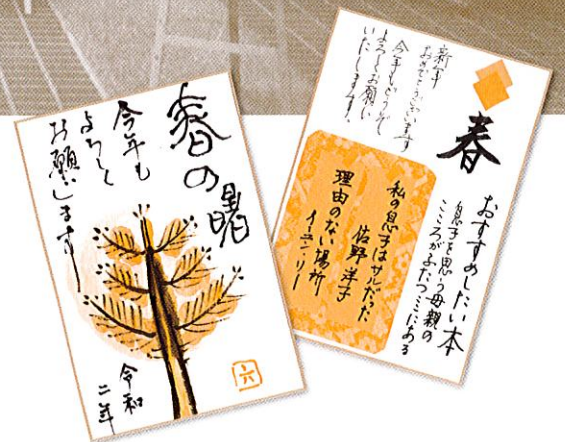 春の曙
今年も
よろしく
お願いします
令和
二年
六
春
新年
おめでとうございます
今年もどうぞ
よろしくお願い
いたします。
おすすめしたい本
息子を思う母親の
こころがふたつここにある
私の息子はサルだった
佐野洋子
理由のない場所
イーユン・リー